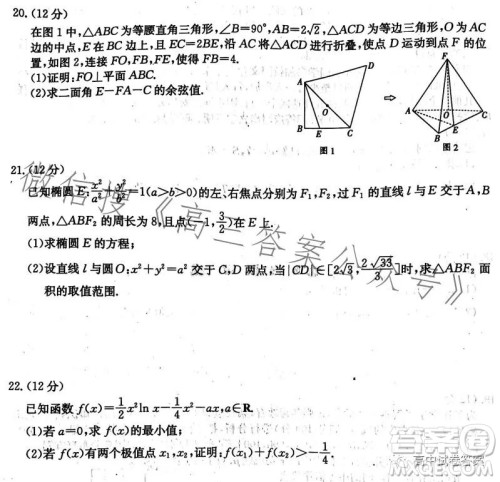 20.(12分)
在图1中,△ABC为等腰直角三角形,∠B=90°,AB=2√2,△ACD为等边三角形,O为AC
边的中点,E在BC边上,且EC=2BE,沿AC将△ACD进行折叠,使点D运动到点F的位
置,如图2,连接FO,FB,FE,使得FB=4.
(1)证明:FO⊥平面ABC.
(2)求二面角E-FA-C的余弦值.
A
D
O
B
E
C
图1
⇨
F
A
O
C
B
E
图2
21.(12分)
已知椭圆E:x²/a²+y²/b²=1(a>b>0)的左、右焦点分别为F₁,F₂,过F₁的直线l与E交于A,B
两点,△ABF₂的周长为8,且点(-1,3/2)在E上.
(1)求椭圆E的方程;
(2)设直线l与圆O:x²+y²=a²交于C,D两点,当|CD|∈[2√3,2√33/3]时,求△ABF₂面
积的取值范围.
22.(12分)
已知函数f(x)=1/2x²ln x-1/4x²-ax,a∈R.
(1)若a=0,求f(x)的最小值;
(2)若f(x)有两个极值点x₁,x₂,证明:f(x₁)+f(x₂)>-1/4.
微信搜《高三答案公众号》
答案圈
MXQE.COM
高中试卷答案